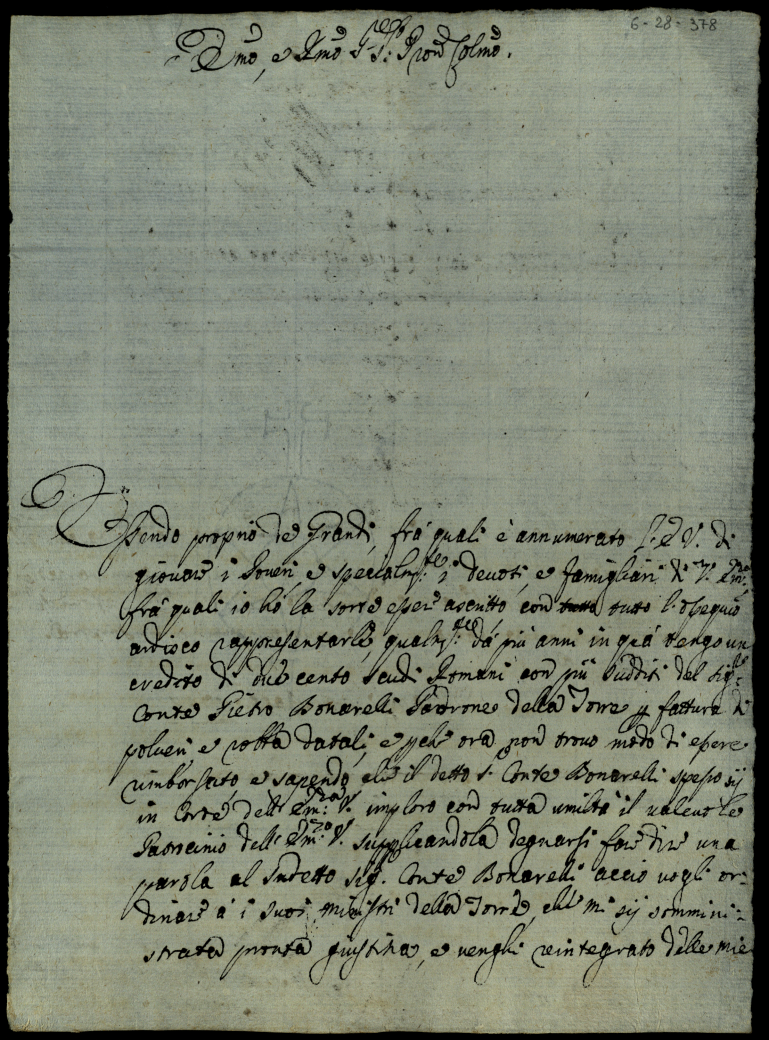 6-28-378
Emo, e Rmo Sig.r Pron Colmo.
Essendo proprio de Grandi, frà quali è annumerato l'E V. di
giovar i Poveri, e specialm.te i devoti, e famigliari di V. Em.za
frà quali io hò la sorte esser ascritto, con tutto l'ossequio
ardisco rappresentarle, qualm.te dà più anni in quà tengo un
credito di due cento scudi Romani con più sudditi del Sig.r
Conte Pietro Bonarelli Padrone della Torre p fattura di
polveri e robba datali, e p che ora non trovo modo di essere
rimborsato, e sapendo che il detto S. Conte Bonarelli spesso sij
in Corte dell' Em.za V. imploro con tutta umiltà il valevole
Patrocinio dell' Em.za V. supplicandola degnarsi far dir una
parola al sudetto Sig. Conte Bonarelli acciò vogli or-
dinar à i suoi ministri della Torre, che mi sij sommini-
strata pronta giustitia, e venghi reintegrato delle mie